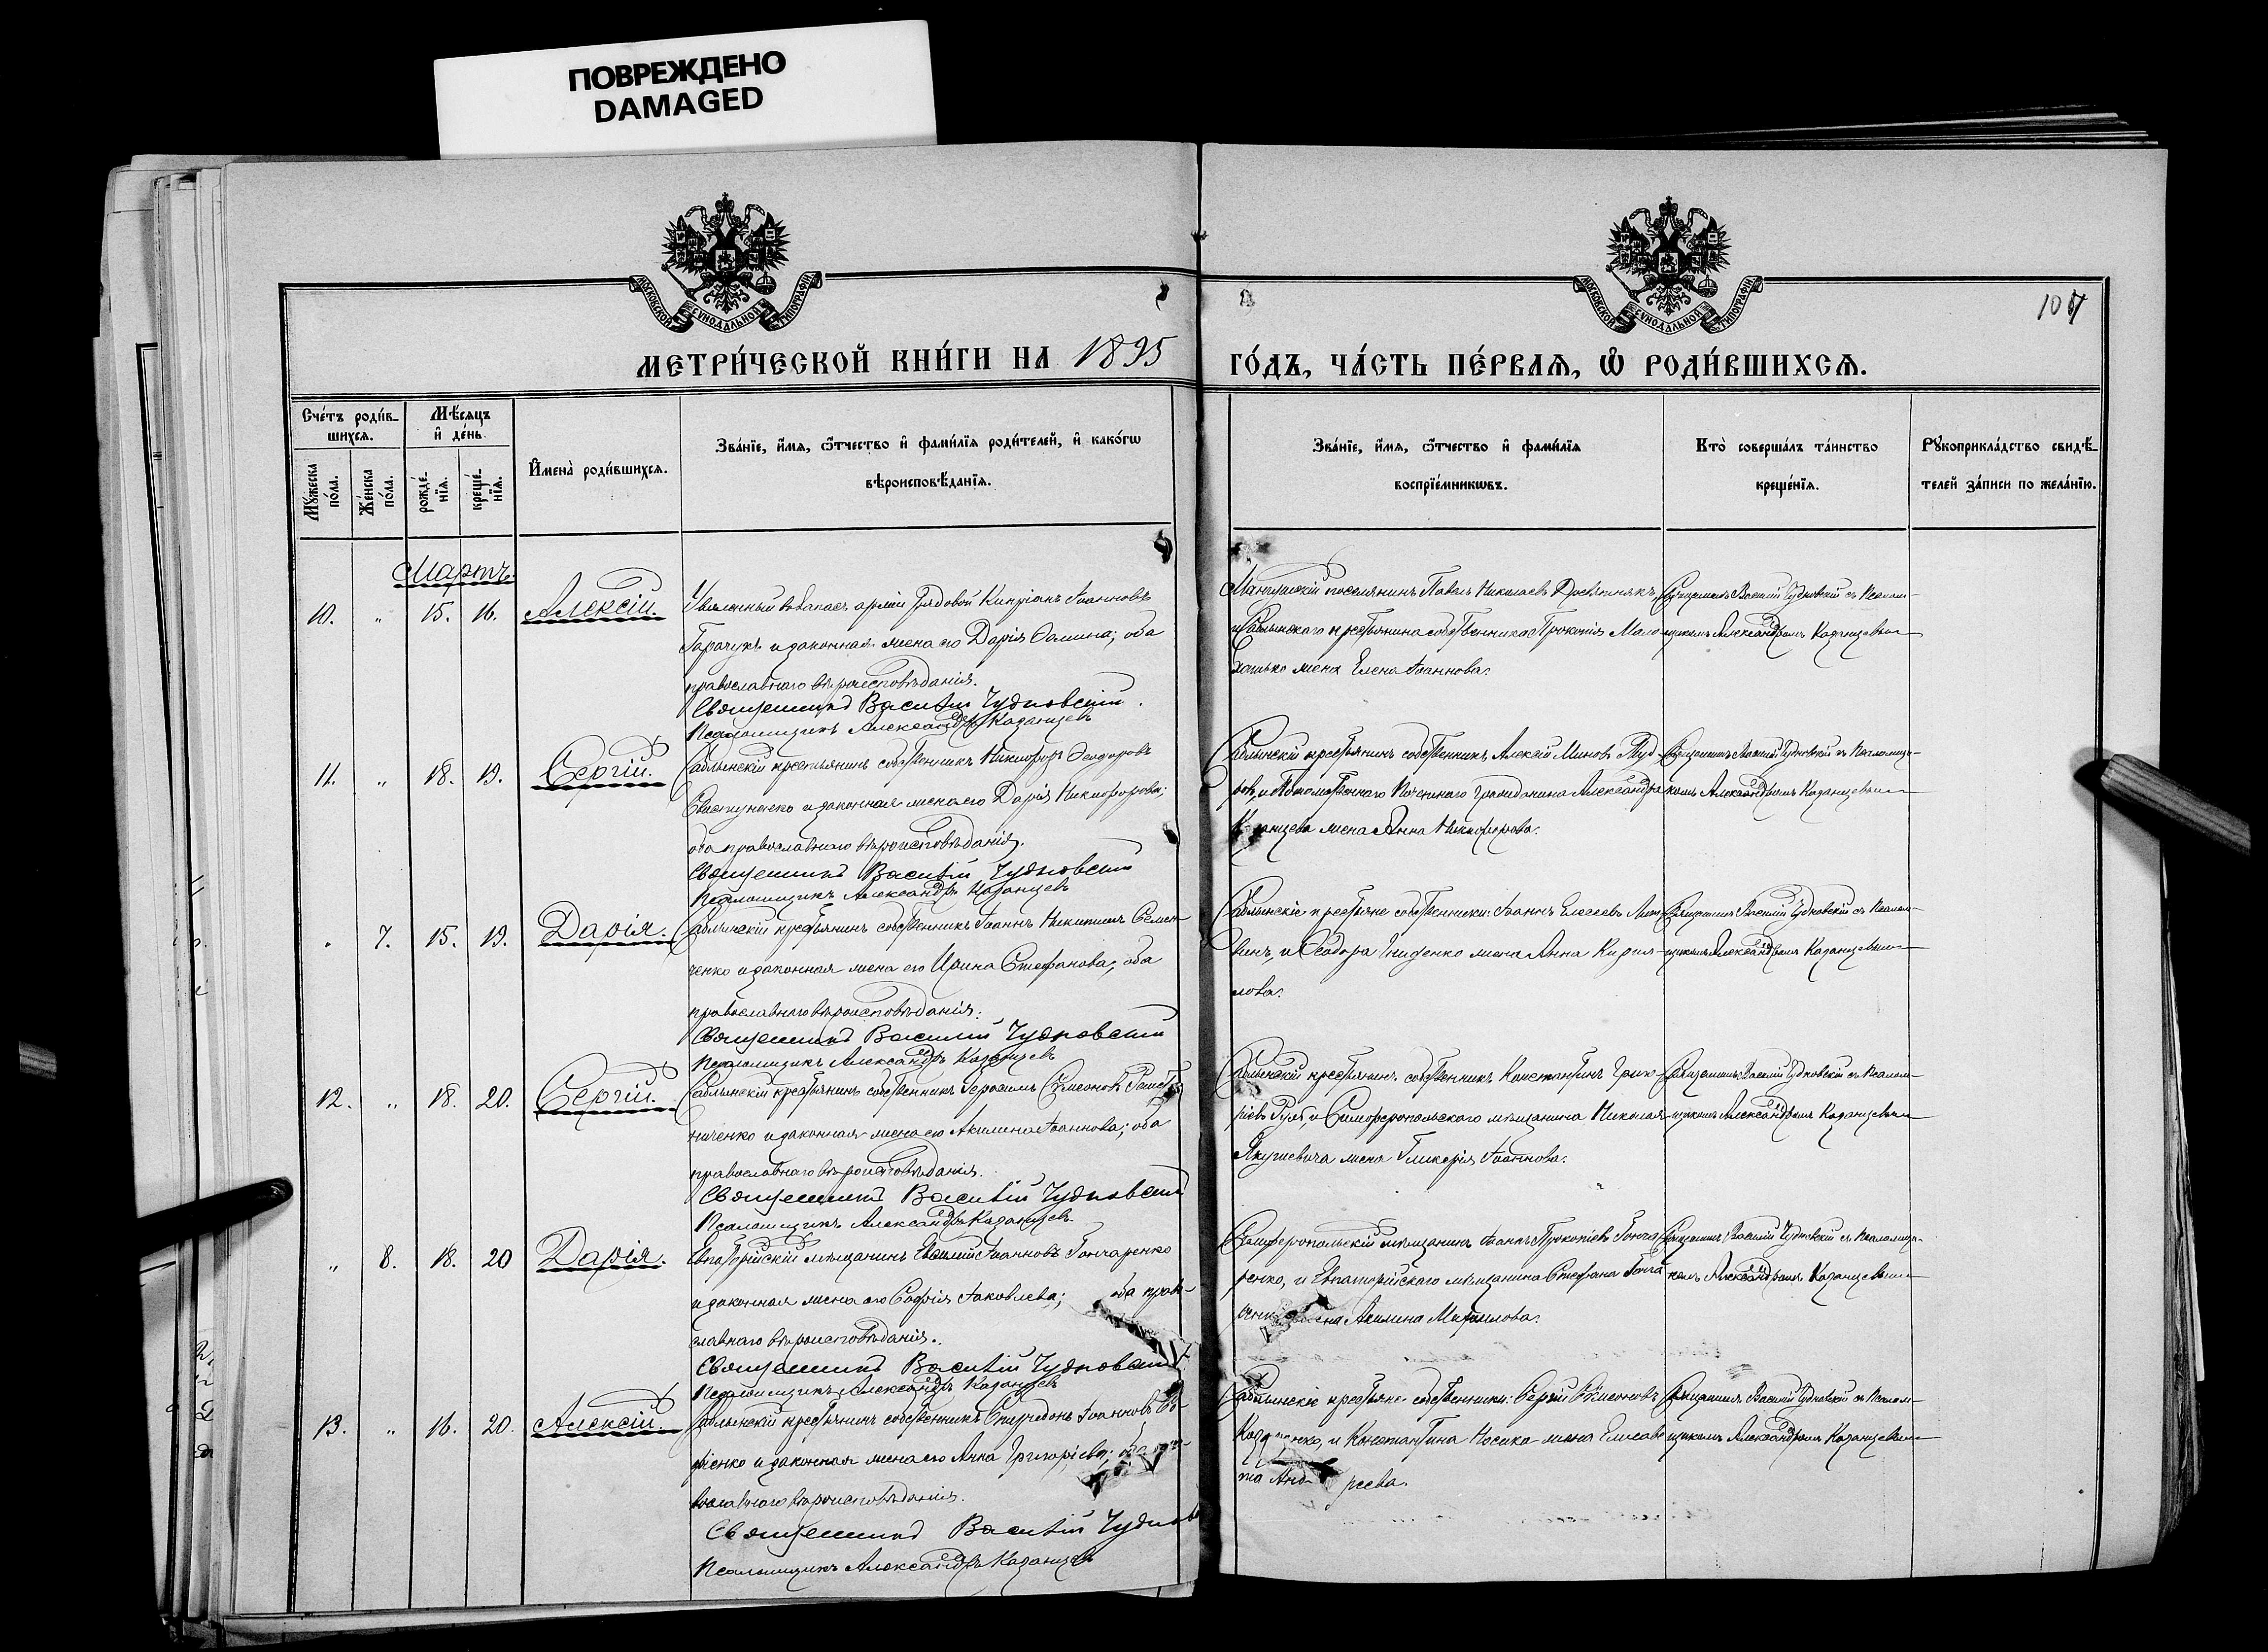 ПОВРЕЖДЕНО
DAMAGED
МОСКОВСКОЙ СѴНОДАЛЬНОЙ ТИПОГРАФІИ
МОСКОВСКОЙ СѴНОДАЛЬНОЙ ТИПОГРАФІИ
107
МЕТРИ́ЧЕСКОЙ КНИ́ГИ НА 1895
ГО́ДЪ, ЧА́СТЬ ПЕ́РВАѦ, Ѡ РОДИ́ВШИХСѦ.
Сче́тъ роди́в-
шихсѧ.
Мѣ́сѧцъ
и де́нь
Мꙋ́жеска по́ла.
Же́нска по́ла.
рожде́-
нїѧ.
креще́-
нїѧ.
Имена̀ роди́вшихсѧ.
Зва́нїе, и́мѧ, ѻ́тчество и фами́лїѧ роди́телей, и како́гѡ
вѣроисповѣ́данїѧ.
Зва́нїе, и́мѧ, ѻ́тчество и фами́лїѧ
воспрїе́мникѡвъ.
Кто̀ соверша́лъ та́инство
креще́нїѧ.
Рꙋкоприкла́дство свидѣ́-
телей за́писи по жела́нїю.
Мартъ.
10. " 15. 16. Алексій.
Уволенный въ запасъ арміи рядовой Кипріанъ Іоанновъ
и законная жена его Дарія; оба
православнаго вѣроисповѣданія.
Священникъ Василій Чудновскій.
Псаломщикъ Александръ Казанцевъ
поселянинъ Павелъ Николаевъ
и Саблынскаго крестьянина собственника Прокопія Мало
жена Елена Іоаннова.
Священникъ Василій Чудновскій съ Псалом-
щикомъ Александромъ Казанцевымъ
11. " 18. 19. Сергій.
Саблынскій крестьянинъ собственникъ Никифоръ Ѳеодоровъ
и законная жена его Дарія Никифорова;
оба православнаго вѣроисповѣданія.
Священникъ Василій Чудновскій
Псаломщикъ Александръ Казанцевъ
Саблынскій крестьянинъ собственникъ Алексій
и Потомственнаго Почетнаго Гражданина Александра
Казанцева жена Анна Никифорова.
Священникъ Василій Чудновскій съ Псаломщи-
комъ Александромъ Казанцевымъ
" 7. 15. 19. Дарія.
Саблынскій крестьянинъ собственникъ Іоаннъ Никитинъ Семен-
ченко и законная жена его Ирина Стефанова; оба
православнаго вѣроисповѣданія.
Священникъ Василій Чудновскій
Псаломщикъ Александръ Казанцевъ
Саблынскіе крестьяне собственники: Іоаннъ Елисеевъ
и Ѳеодора жена Анна Кирил-
лова.
Священникъ Василій Чудновскій съ Псалом-
щикомъ Александромъ Казанцевымъ
12. " 18. 20. Сергій.
Саблынскій крестьянинъ собственникъ Герасимъ Симеоновъ
ниченко и законная жена его Акилина Іоаннова; оба
православнаго вѣроисповѣданія.
Священникъ Василій Чудновскій
Псаломщикъ Александръ Казанцевъ
Саблынскій крестьянинъ собственникъ Константинъ Григо-
ріевъ и Симферопольскаго мѣщанина Николая
Якушевича жена Гликерія Іоаннова.
Священникъ Василій Чудновскій съ Псалом-
щикомъ Александромъ Казанцевымъ
" 8. 18. 20 Дарія.
Евпаторійскій мѣщанинъ Василій Іоанновъ Гончаренко
и законная жена его Софія Іаковлева; оба право-
славнаго вѣроисповѣданія.
Священникъ Василій Чудновскій
Псаломщикъ Александръ Казанцевъ
Симферопольскій мѣщанинъ Іоаннъ Прокопіевъ Гонча-
ренко, и Евпаторійскаго мѣщанина Стефана Гонча
жена Акилина
Священникъ Василій Чудновскій съ Псаломщи-
комъ Александромъ Казанцевымъ
13. " 16. 20. Алексій.
Саблынскій крестьянинъ собственникъ Спиридонъ Іоанновъ
ріенко и законная жена его Анна Григоріева; оба пра-
вославнаго вѣроисповѣданія.
Священникъ Василій Чуднов
Псаломщикъ Александръ Казанцевъ
Саблынскіе крестьяне собственники: Сергій Симеоновъ
и Константина Носика жена Елисаве
та Анд реева.
Священникъ Василій Чудновскій съ Псалом-
щикомъ Александромъ Казанцевымъ